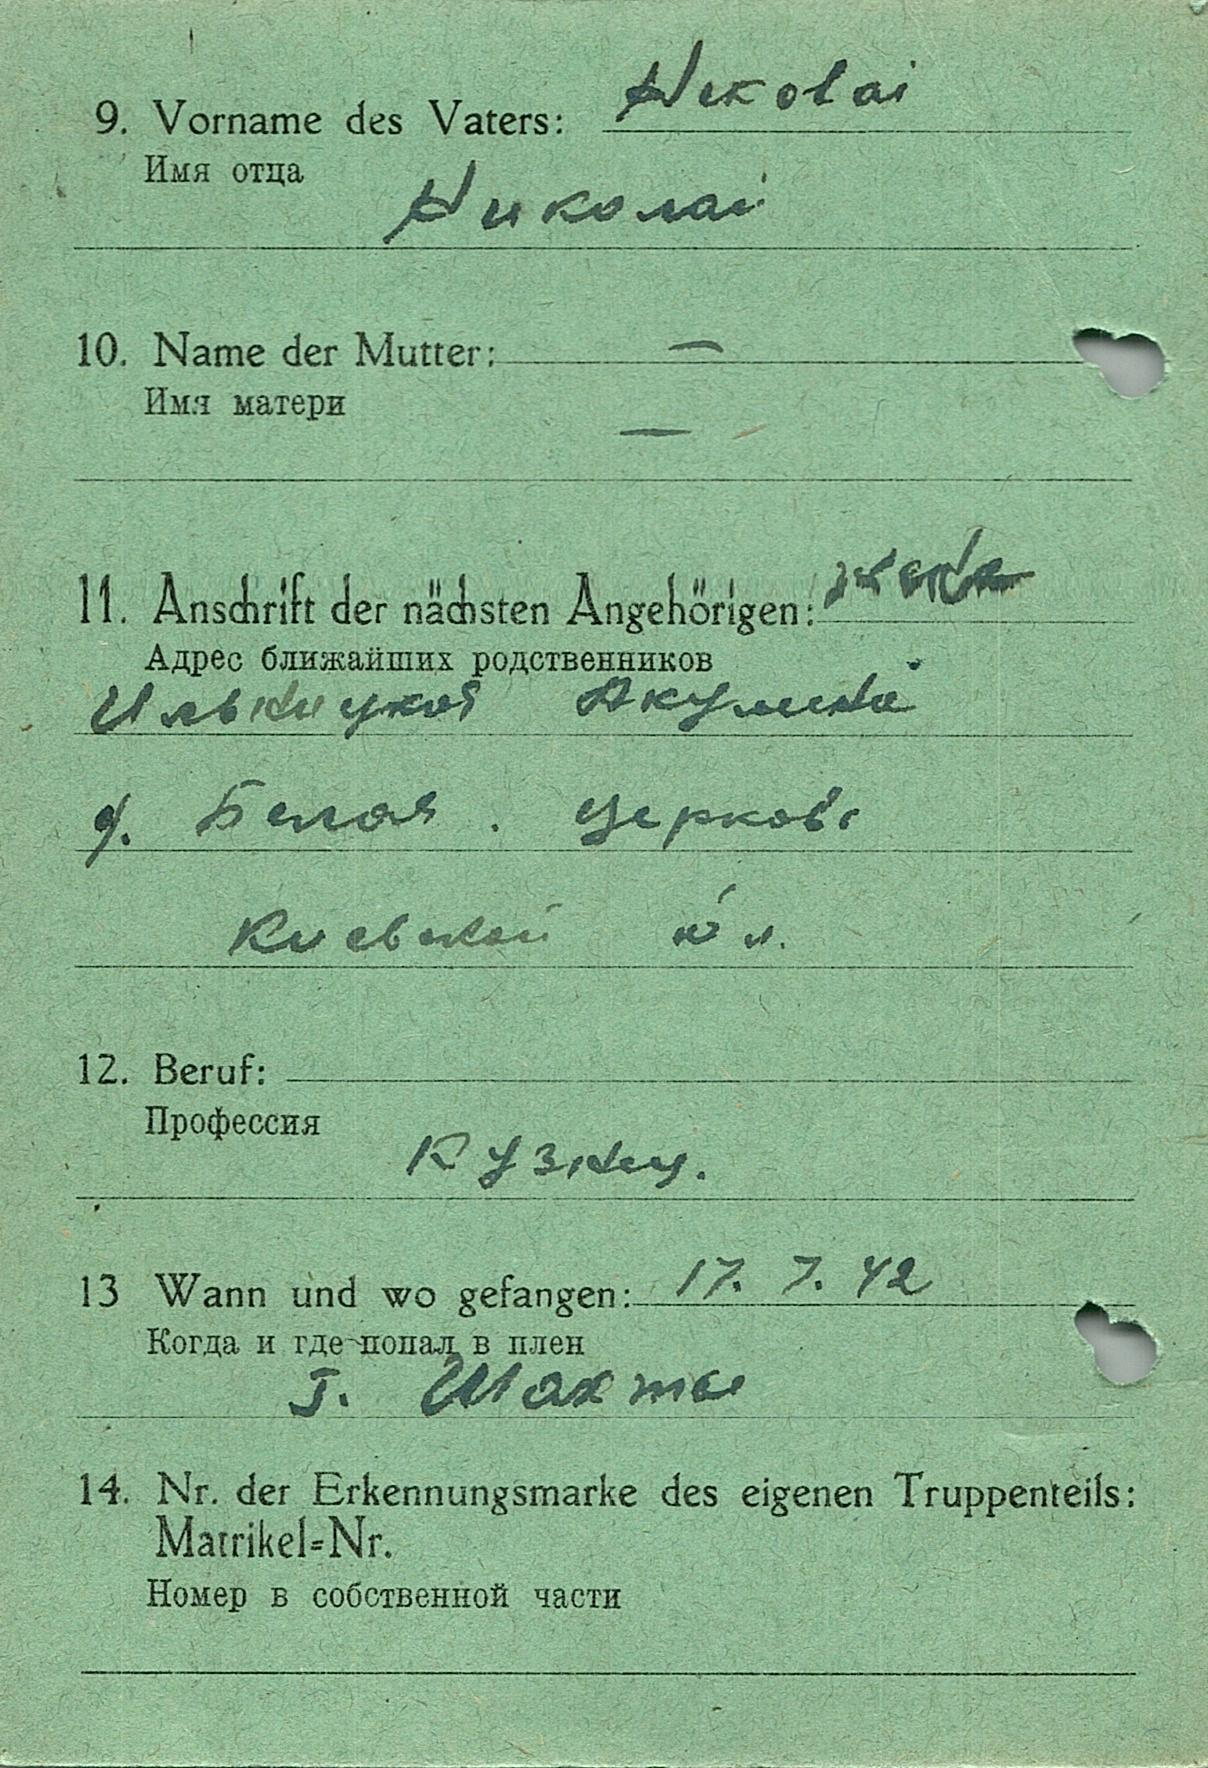 9. Vorname des Vaters: Nikolai
Имя отца
Николай
10. Name der Mutter: —
Имя матери
—
11. Anschrift der nächsten Angehörigen: жена
Адрес ближайших родственников
Ильницкой Акулина
Белая церковь
Киевской
12. Beruf:
Профессия
Кузнец.
13 Wann und wo gefangen: 17. 7. 42
Когда и где попал в плен
г. Шахты
14. Nr. der Erkennungsmarke des eigenen Truppenteils:
Matrikel=Nr.
Номер в собственной части